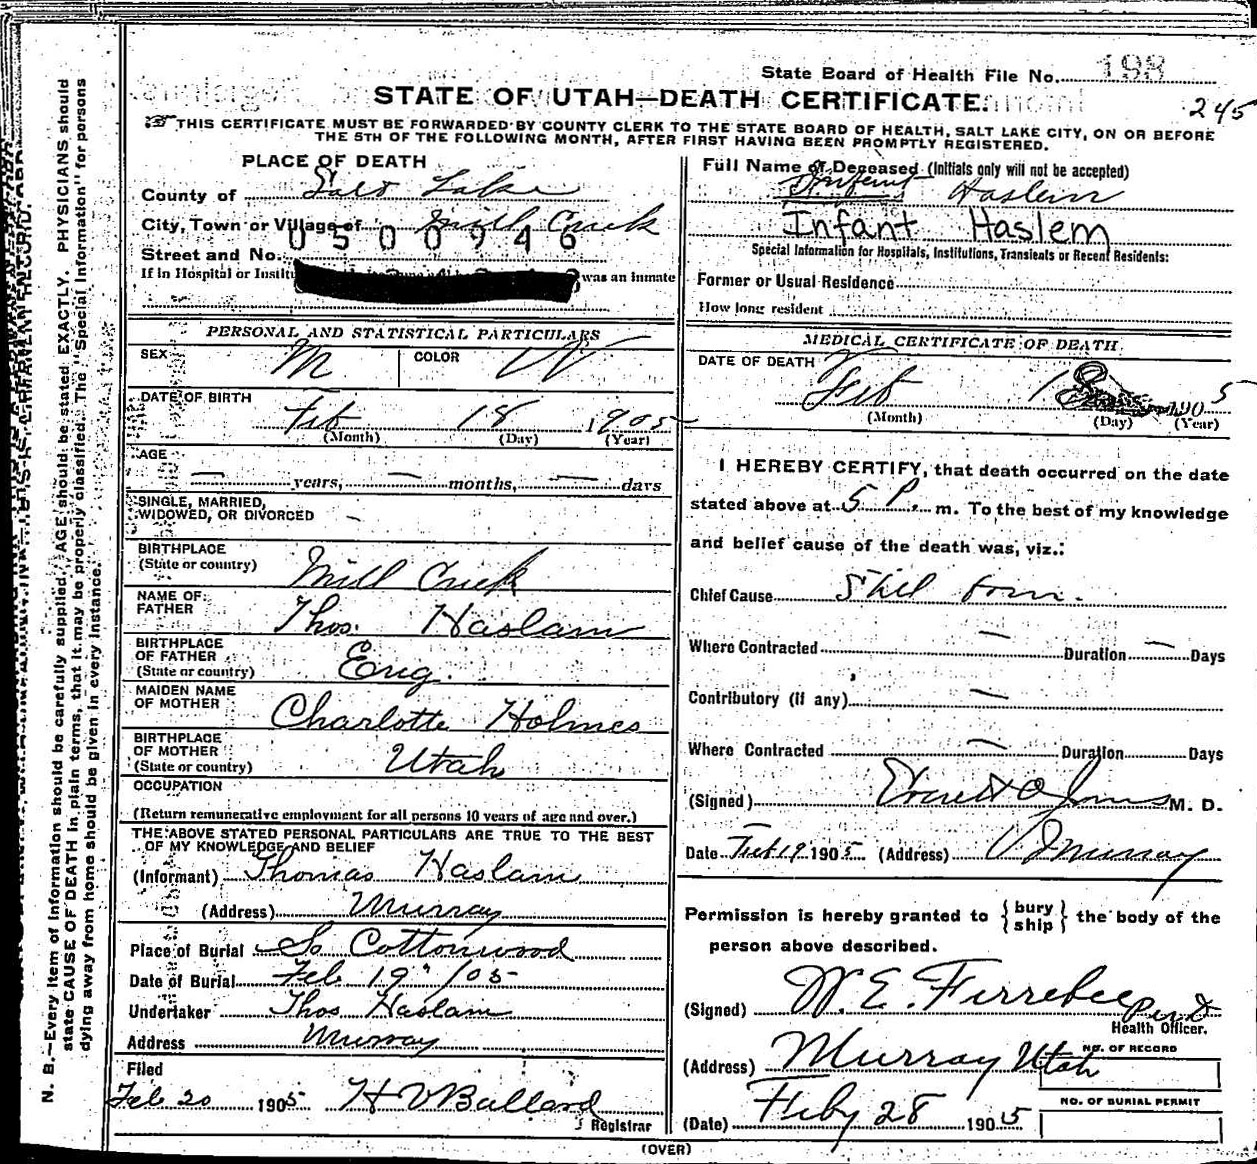 State Board of Health File No. 198
245
STATE OF UTAH—DEATH CERTIFICATE.
THIS CERTIFICATE MUST BE FORWARDED BY COUNTY CLERK TO THE STATE BOARD OF HEALTH, SALT LAKE CITY, ON OR BEFORE
THE 5TH OF THE FOLLOWING MONTH, AFTER FIRST HAVING BEEN PROMPTLY REGISTERED.
PLACE OF DEATH
County of Salt Lake
City, Town or Village of Mill Creek
0500946
Street and No.
If in Hospital or Institu was an inmate
PERSONAL AND STATISTICAL PARTICULARS
SEX M COLOR W
DATE OF BIRTH
Feb 18 1905
(Month) (Day) (Year)
AGE
— years, — months, — days
SINGLE, MARRIED,
WIDOWED, OR DIVORCED —
BIRTHPLACE
(State or country) Mill Creek
NAME OF
FATHER Thos. Haslam
BIRTHPLACE
OF FATHER
(State or country) Eng.
MAIDEN NAME
OF MOTHER Charlotte Holmes
BIRTHPLACE
OF MOTHER
(State or country) Utah
OCCUPATION
(Return remunerative employment for all persons 10 years of age and over.)
THE ABOVE STATED PERSONAL PARTICULARS ARE TRUE TO THE BEST
OF MY KNOWLEDGE AND BELIEF
(Informant) Thomas Haslam
(Address) Murray
Place of Burial So Cottonwood
Date of Burial Feb 19" /05
Undertaker Thos Haslam
Address Murray
Filed
Feb 20 1905 H V Ballard
Registrar
Full Name of Deceased (Initials only will not be accepted)
Infant Haslem
Infant Haslem
Special Information for Hospitals, Institutions, Transients or Recent Residents:
Former or Usual Residence
How long resident
MEDICAL CERTIFICATE OF DEATH
DATE OF DEATH
Feb 18 1905
(Month) (Day) (Year)
I HEREBY CERTIFY, that death occurred on the date
stated above at 5 P. m. To the best of my knowledge
and belief cause of the death was, viz.:
Chief Cause Stil born.
Where Contracted — Duration — Days
Contributory (if any) —
Where Contracted — Duration Days
(Signed) Everett O Jones M. D.
Date Feb 19 1905 (Address) Murray
Permission is hereby granted to { bury
ship } the body of the
person above described.
(Signed) W. E. Ferrebee
Health Officer.
(Address) Murray Utah
NO. OF RECORD
NO. OF BURIAL PERMIT
(Date) Feby 28 1905
(OVER)
N. B.—Every item of information should be carefully supplied. AGE should be stated EXACTLY. PHYSICIANS should
state CAUSE OF DEATH in plain terms, that it may be properly classified. The "Special Information" for persons
dying away from home should be given in every instance.